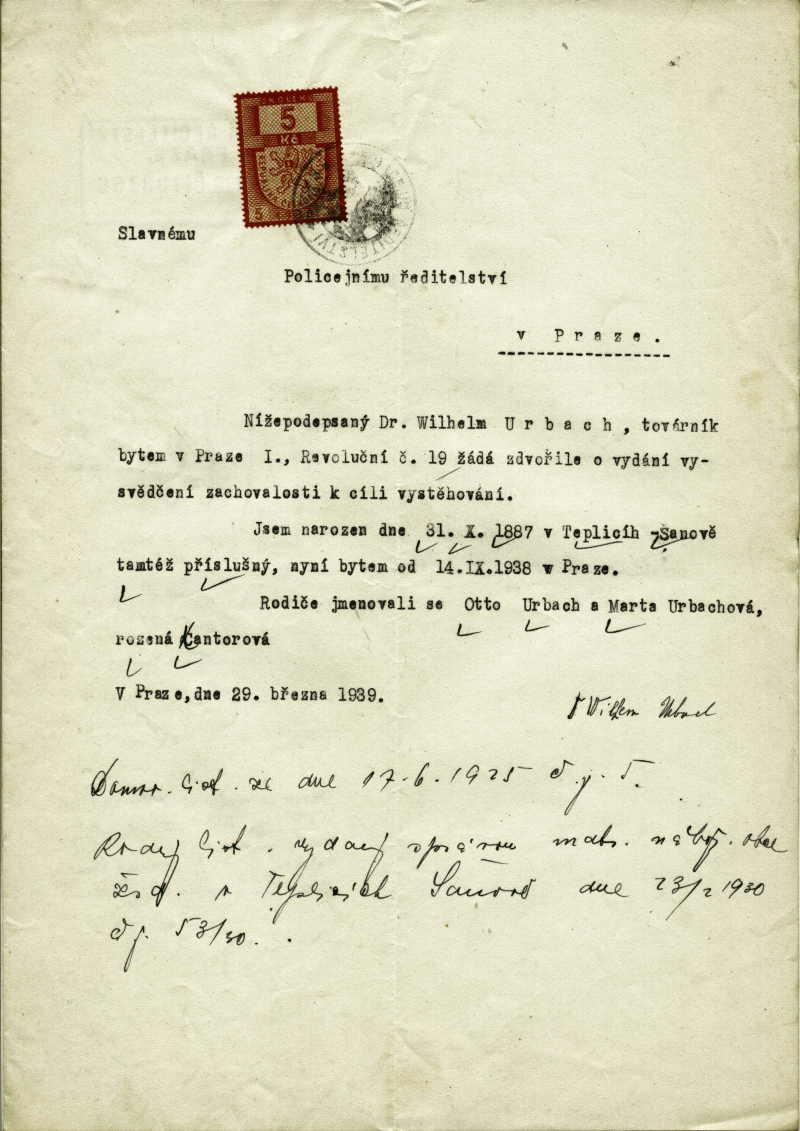 KOLEK
5
Kč
5
Slavnému
Policejnímu ředitelství
v Praze.
Nížepodepsaný Dr. Wilhelm Urbach, továrník
bytem v Praze I., Revoluční č. 19 žádá zdvořile o vydání vy-
svědčení zachovalosti k cíli vystěhování.
Jsem narozen dne 31. X. 1887 v Teplicíh -Šanově
tamtéž příslušný, nyní bytem od 14.IX.1938 v Praze.
Rodiče jmenovali se Otto Urbach a Marta Urbachová,
rozená Kantorová
V Praze, dne 29. března 1939.
Dr Wilhelm Urbach
Domov. list. ze dne 17.6.1925 č.j. 5.
Rodný list. vydaný správou matr. nábož. obce
žid. v Teplicích Šanově dne 23/2 1930
č j. 53/30.